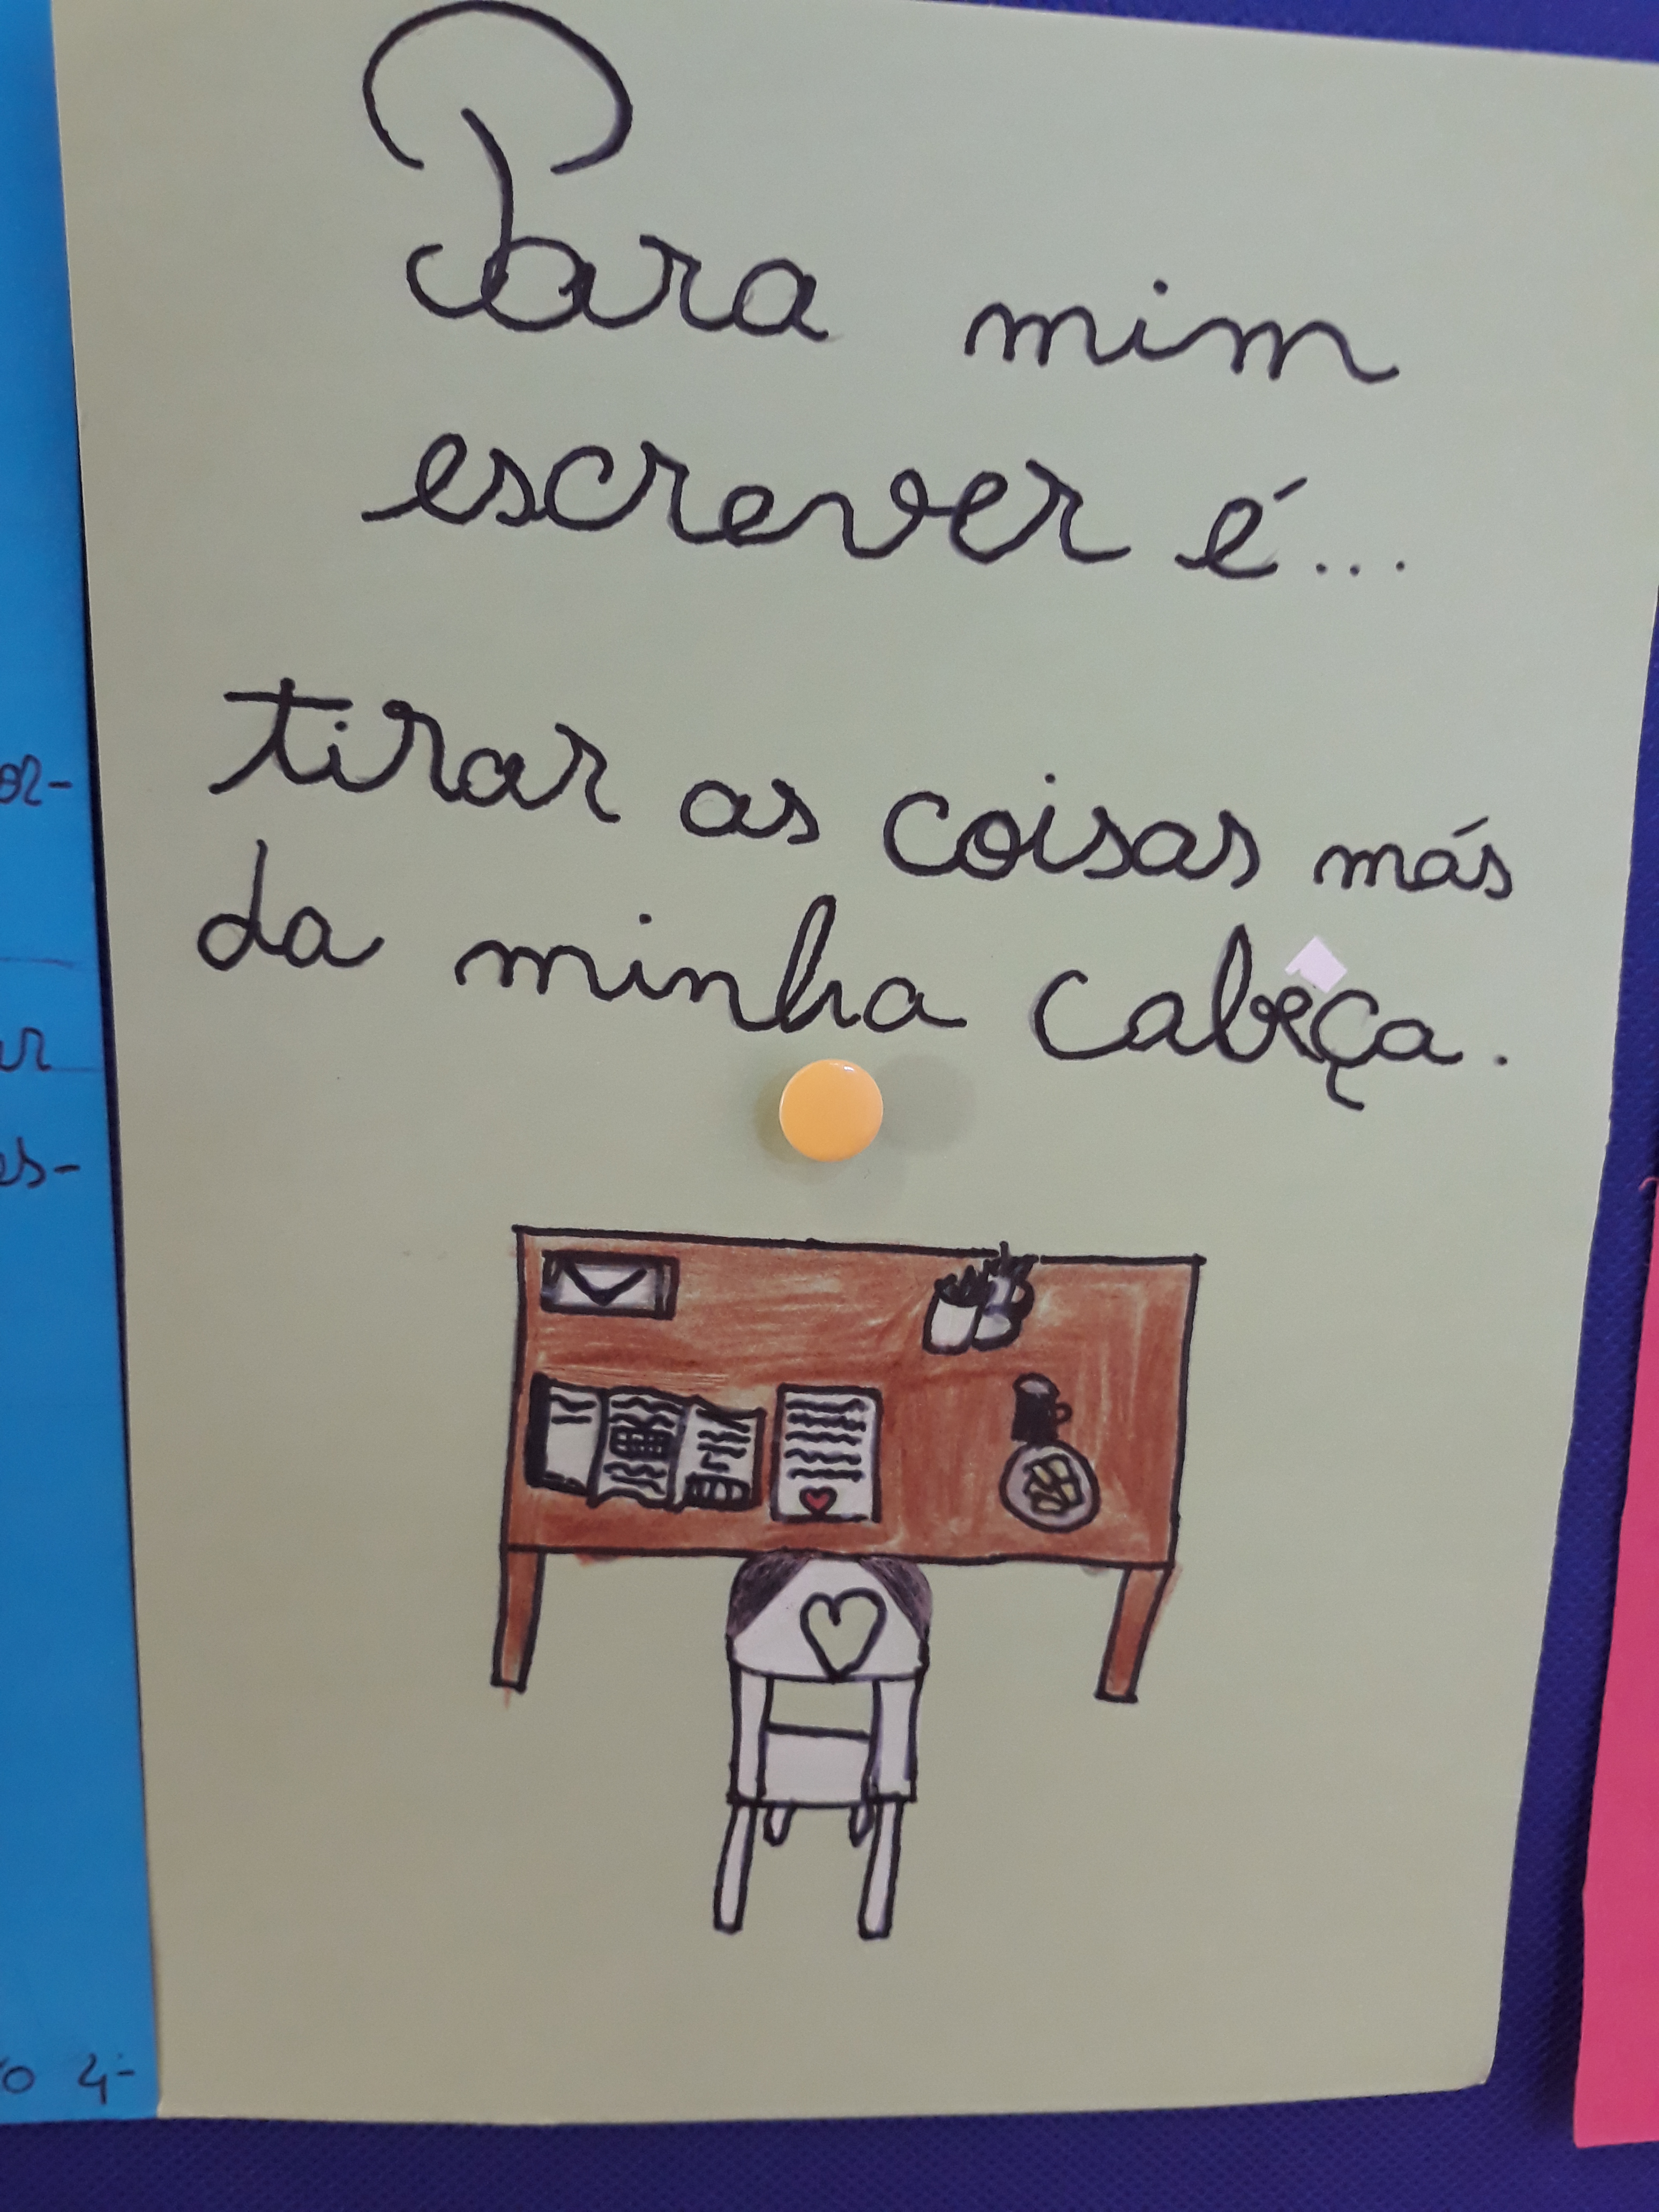 Para mim
escrever é...
tirar as coisas más
da minha cabeça.